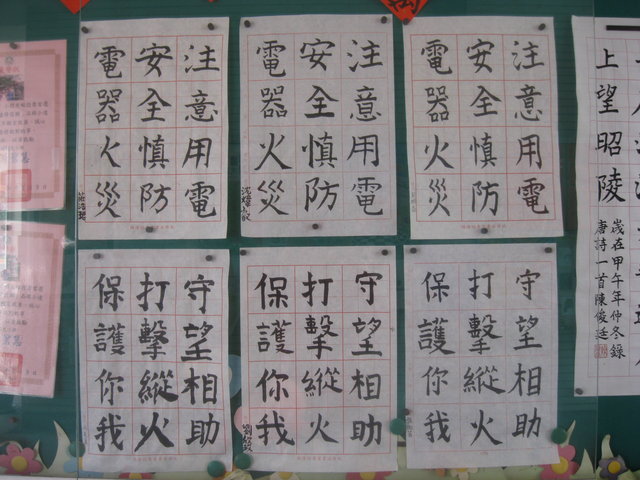 注意用電
安全慎防
電器火災
注意用電
安全慎防
電器火災
注意用電
安全慎防
電器火災
守望相助
打擊縱火
保護你我
守望相助
打擊縱火
保護你我
守望相助
打擊縱火
保護你我
上望昭陵
歲在甲午年仲冬錄
唐詩一首陳俊廷